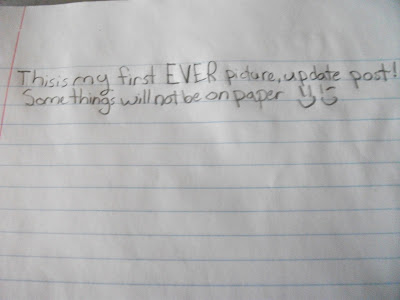 This is my first EVER picture, update post!
Some things will not be on paper